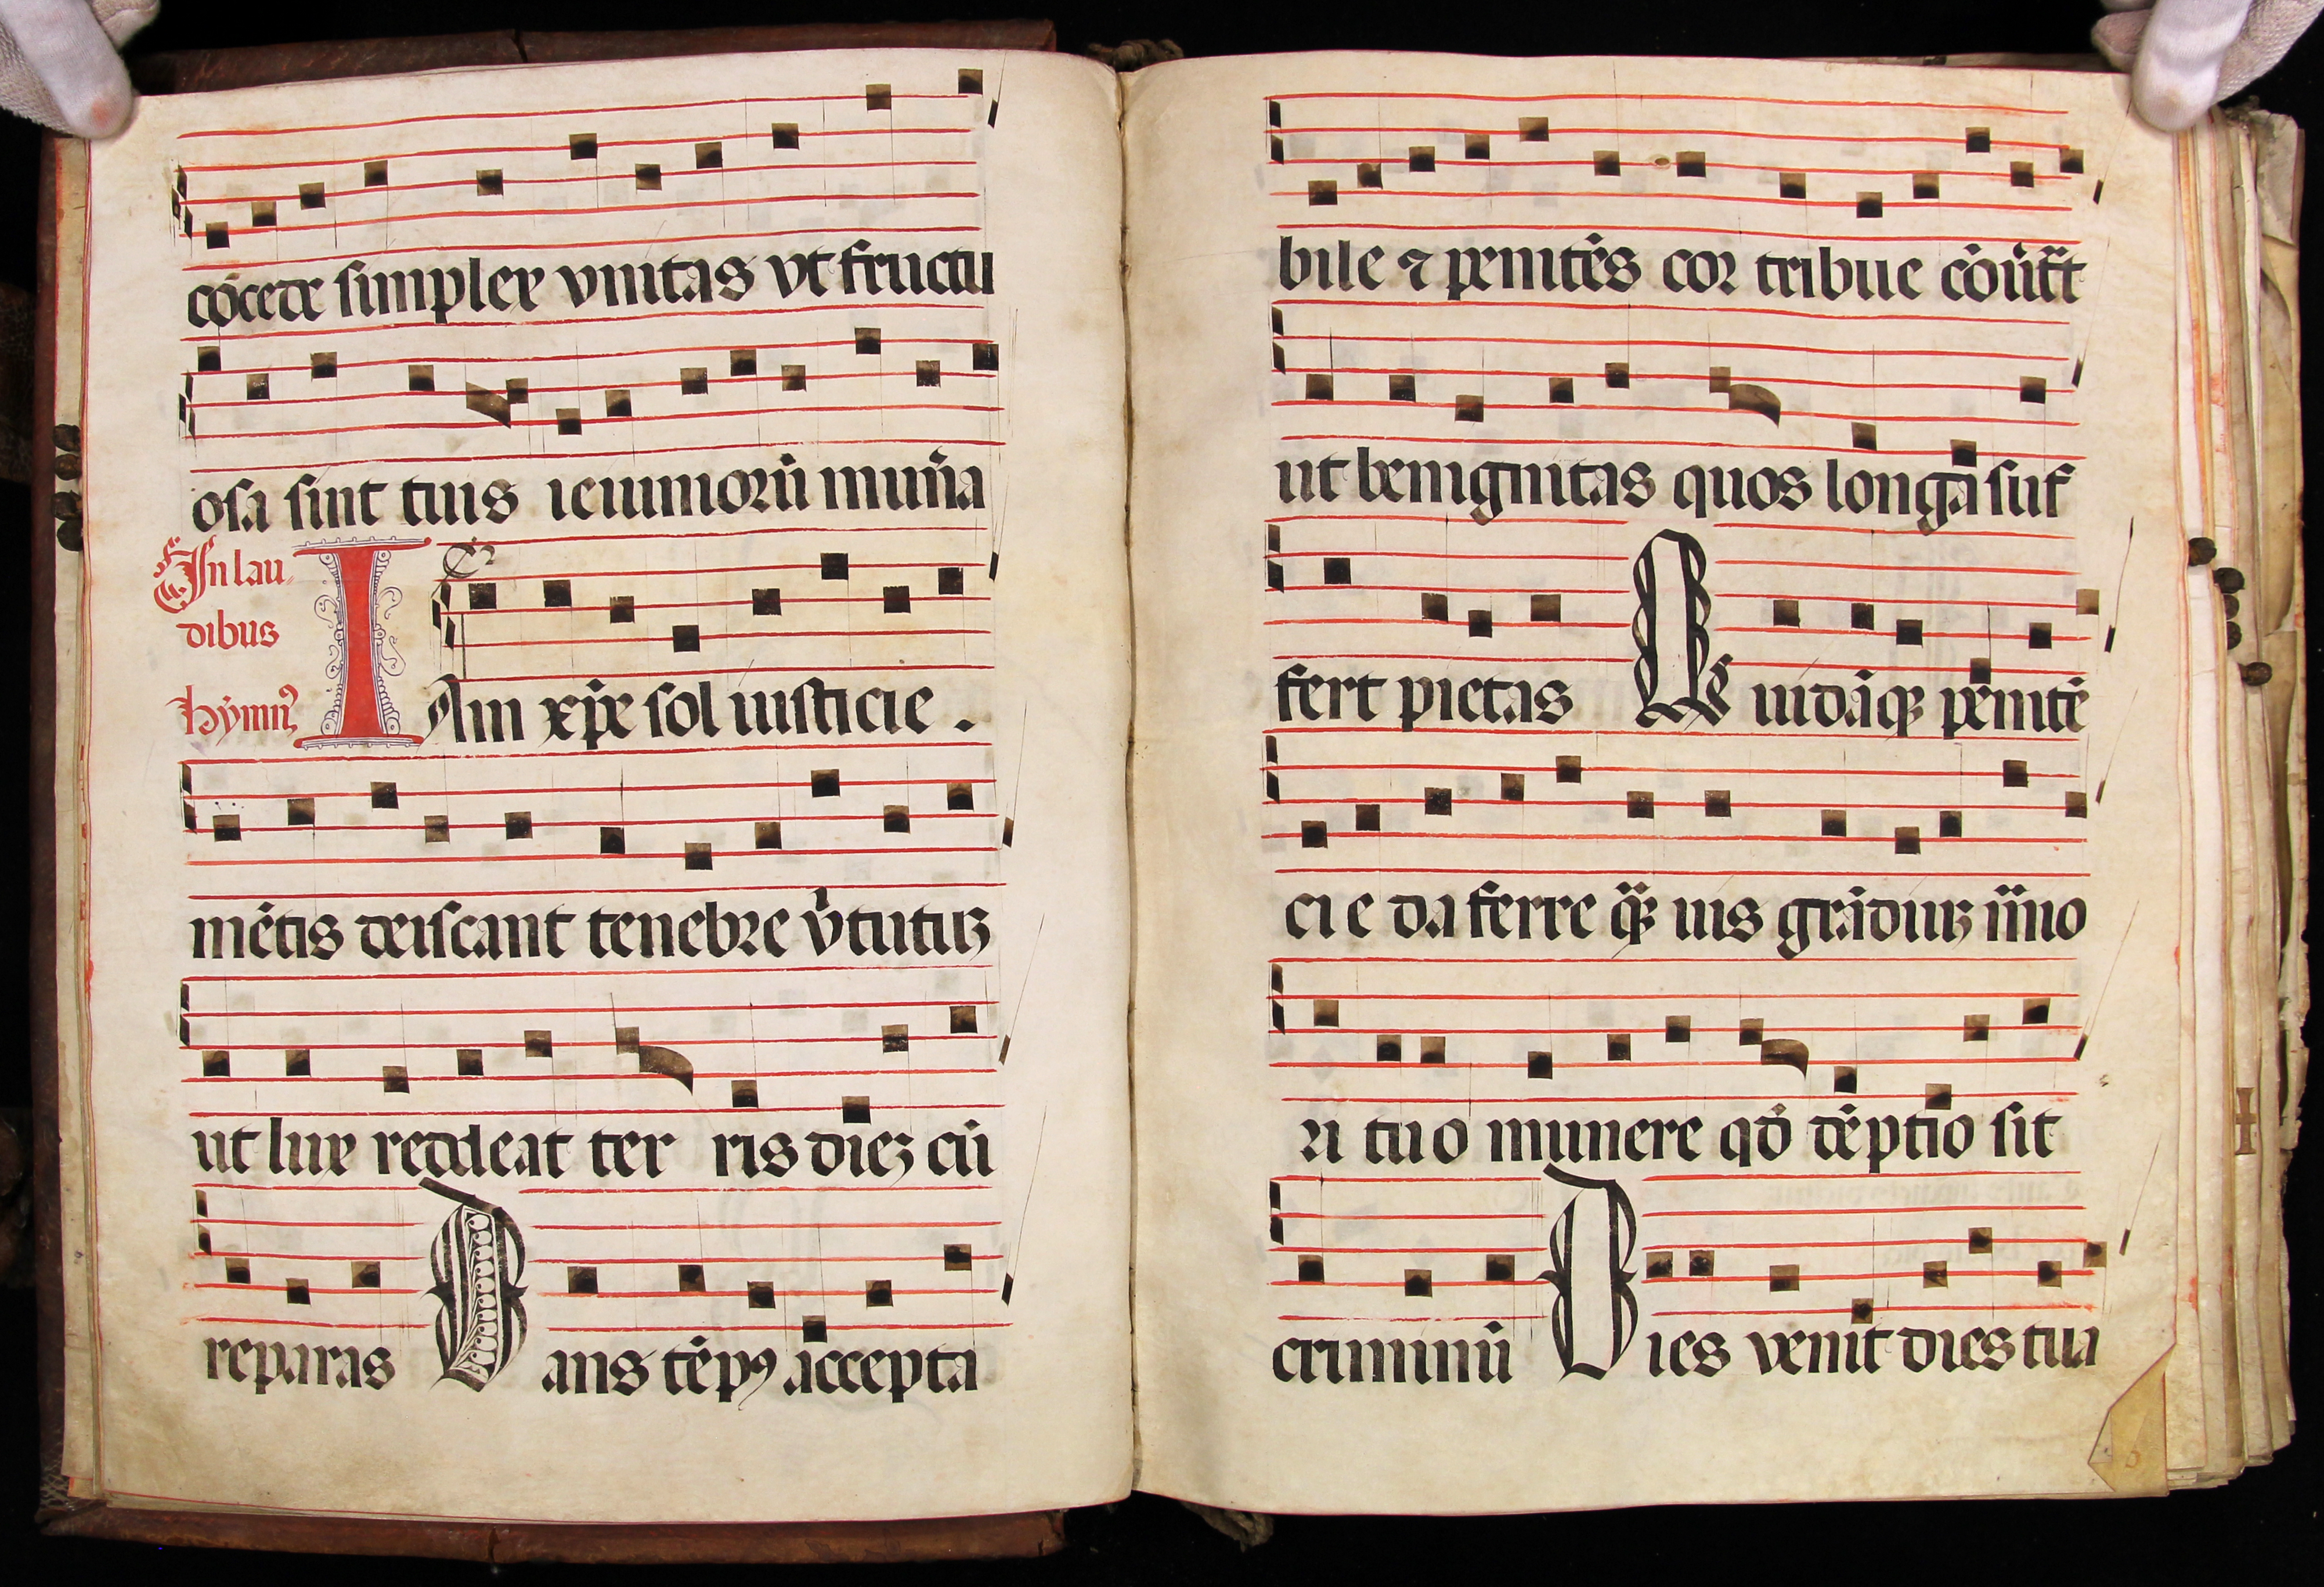 cōcede simplex vnitas vt fructu
osa sint tuis ieiuniorū mun̄a
In lau-
dibus
hymn⁹
IAm xp̄e sol iusticie .
mētis deiscant tenebre v̄tutuʒ
ut lux reddeat ter ris dieʒ cū
reparas Dans tēpꝰ accepta
bile ⁊ penitēs cor tribue cōu̓tāt
ut benignitas quos longā suf
fert pietas Quidāqꝫ penitē
cie da ferre q̄ꝫ uis grāduuʒ im̄io
ri tuo munere qō dēptio sit
criminū Dies venit dies tua